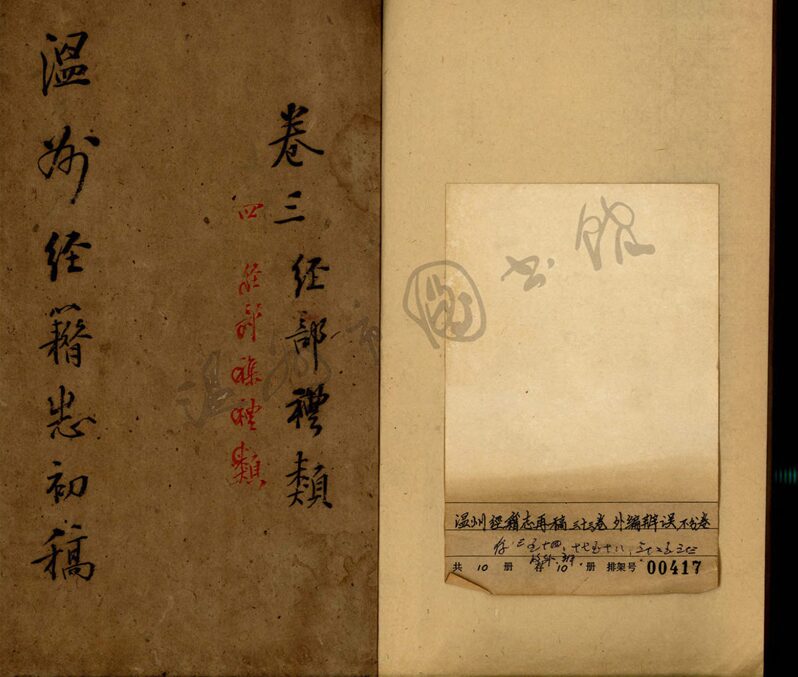 溫州经籍志初稿
卷三 经部禮類
四 经部禮類
温州市圖书馆
温州经籍志再稿三十三卷外编辩误不分卷
存三至十四、十七至十八、
共10册 存10册 排架号00417